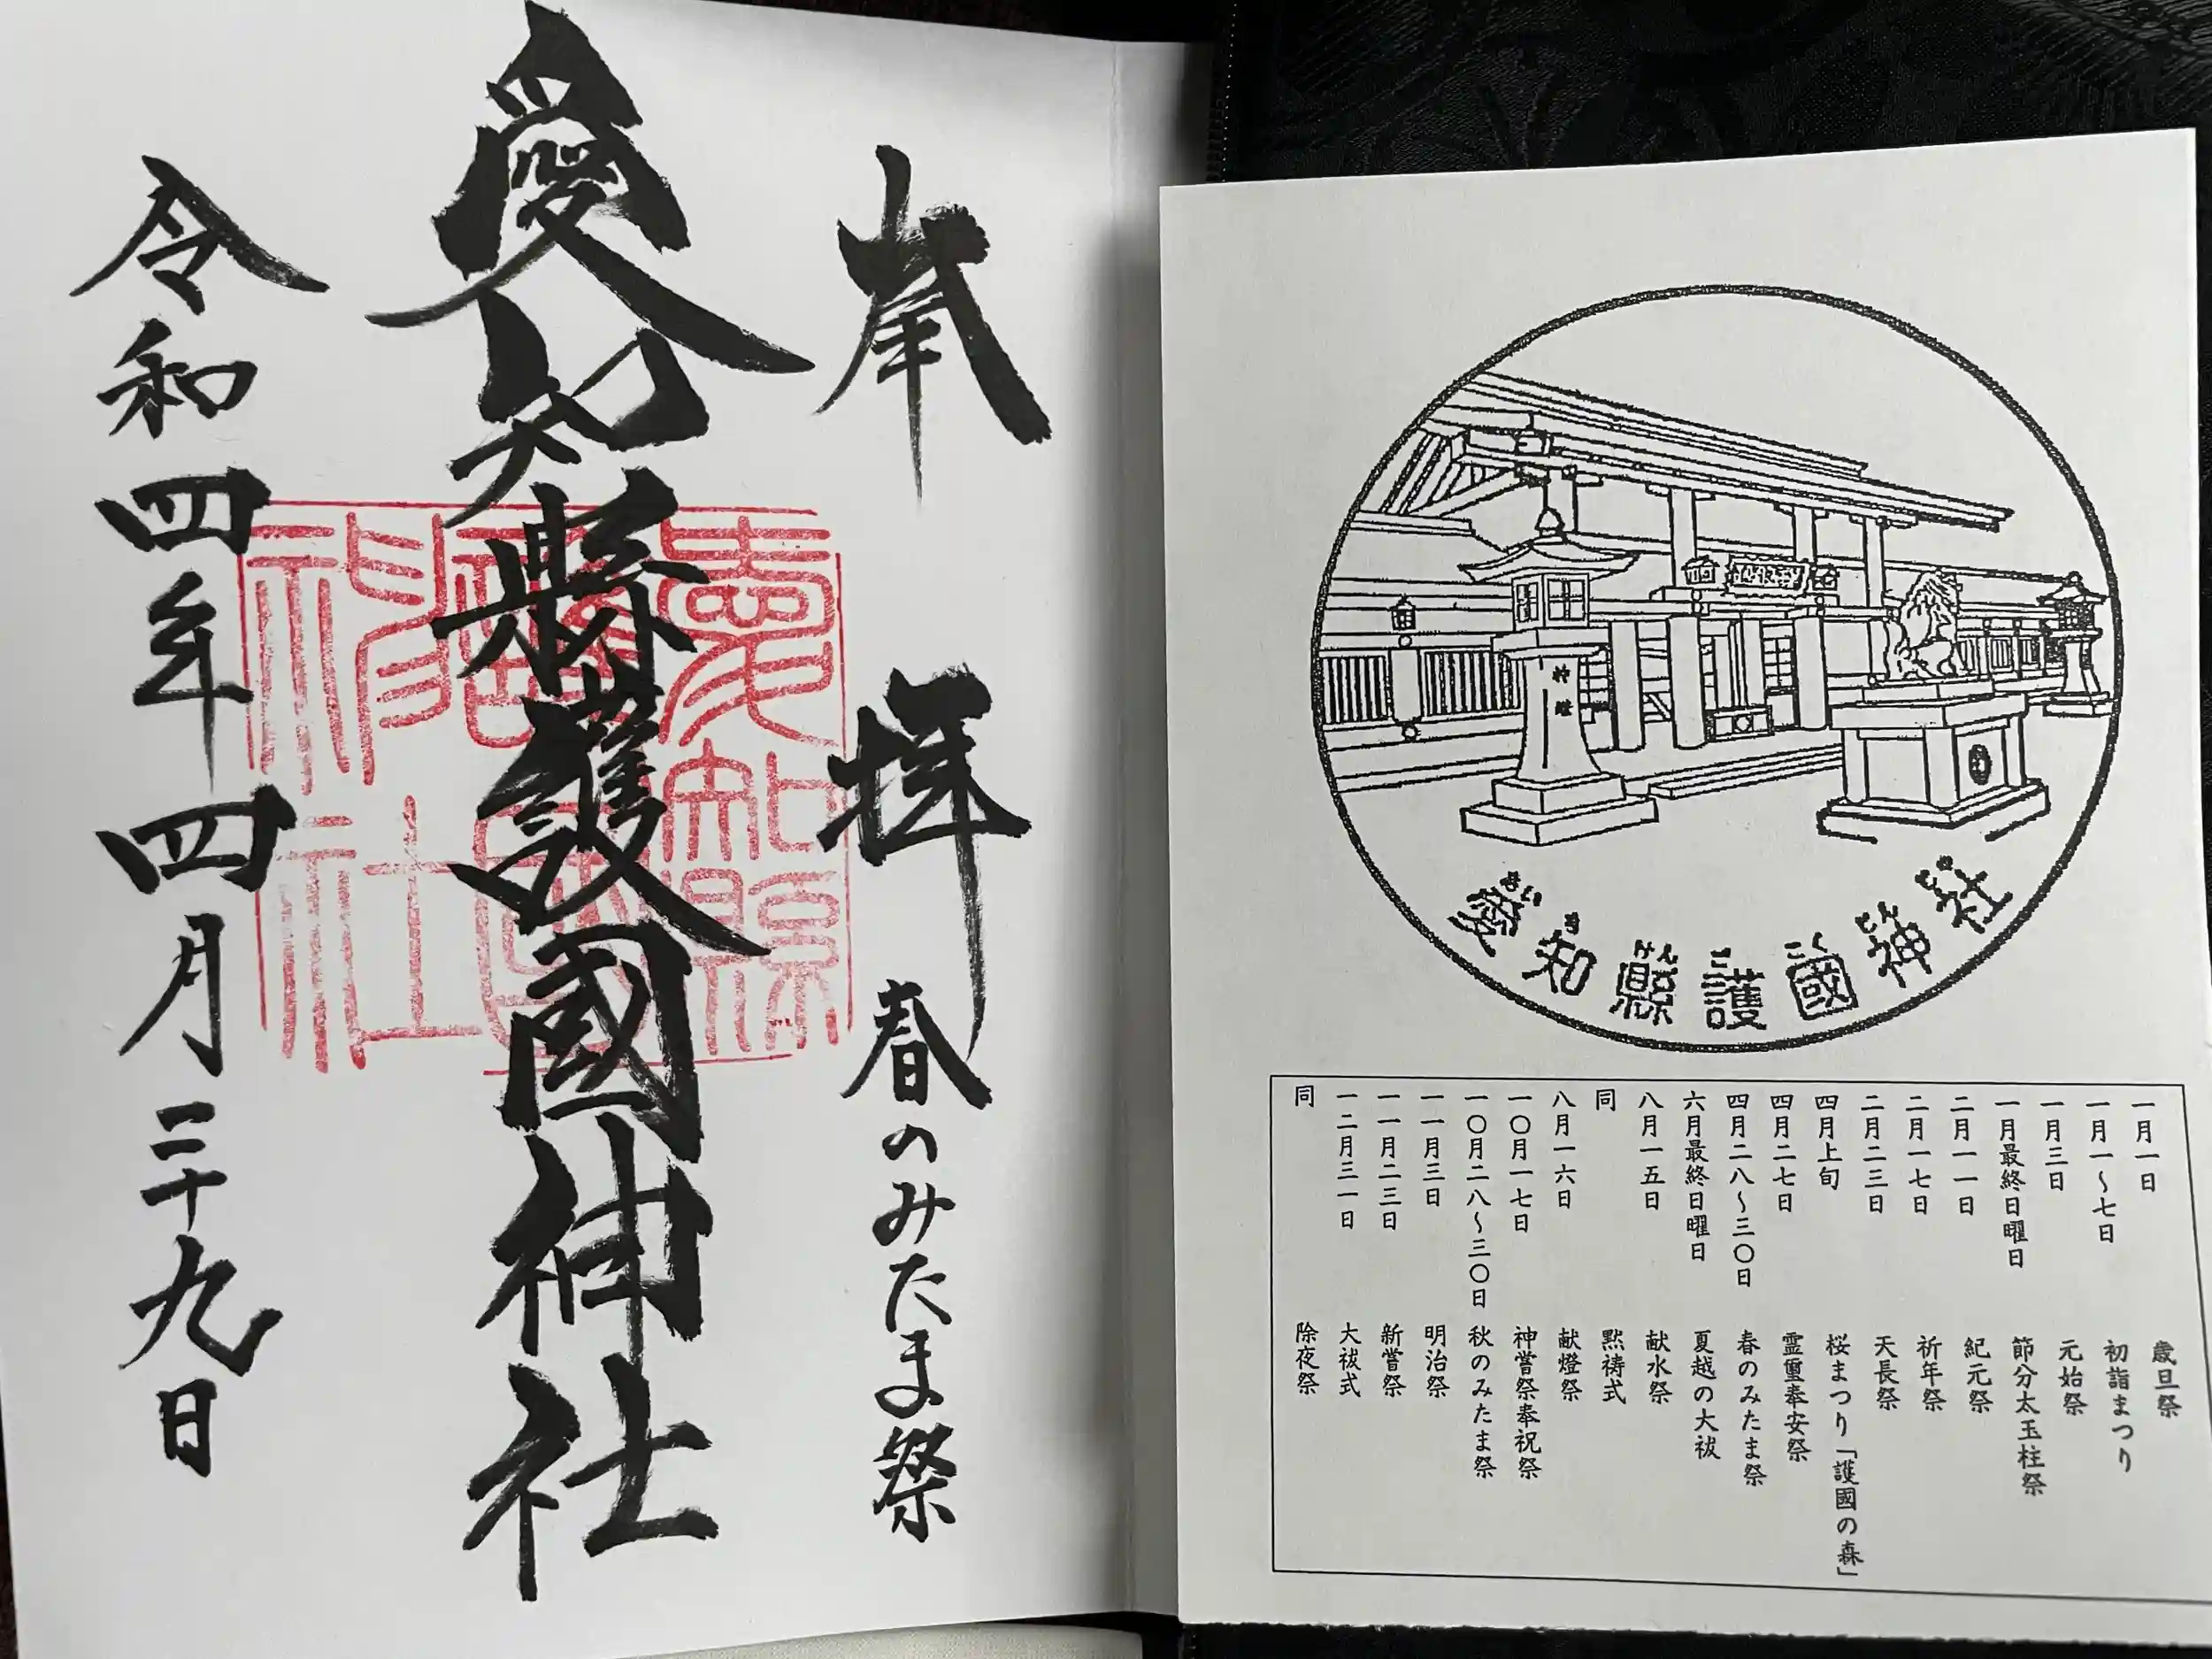 奉拝
春のみたま祭
愛知縣護國神社
令和四年四月二十九日
愛知縣護國神社
愛知縣護國神社
あいちけんごこくじんじゃ
一月一日 歳旦祭
一月一〜七日 初詣まつり
一月三日 元始祭
一月最終日曜日 節分太玉柱祭
二月一一日 紀元祭
二月一七日 祈年祭
二月二三日 天長祭
四月上旬 桜まつり「護國の森」
四月二七日 霊璽奉安祭
四月二八〜三〇日 春のみたま祭
六月最終日曜日 夏越の大祓
八月一五日 献水祭
同 黙祷式
八月一六日 献燈祭
一〇月一七日 神嘗祭奉祝祭
一〇月二八〜三〇日 秋のみたま祭
一一月三日 明治祭
一一月二三日 新嘗祭
一二月三一日 大祓式
同 除夜祭